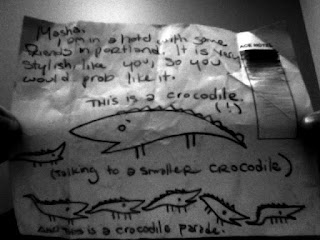 Masha,
I am in a hotel with some
friends in portland. It is very
stylish like you, so you
would prob like it.
ACE HOTEL
THIS is a crocodile.
(!)
(talking to a smaller CROCODILE)
AND This is a crocodile parade.